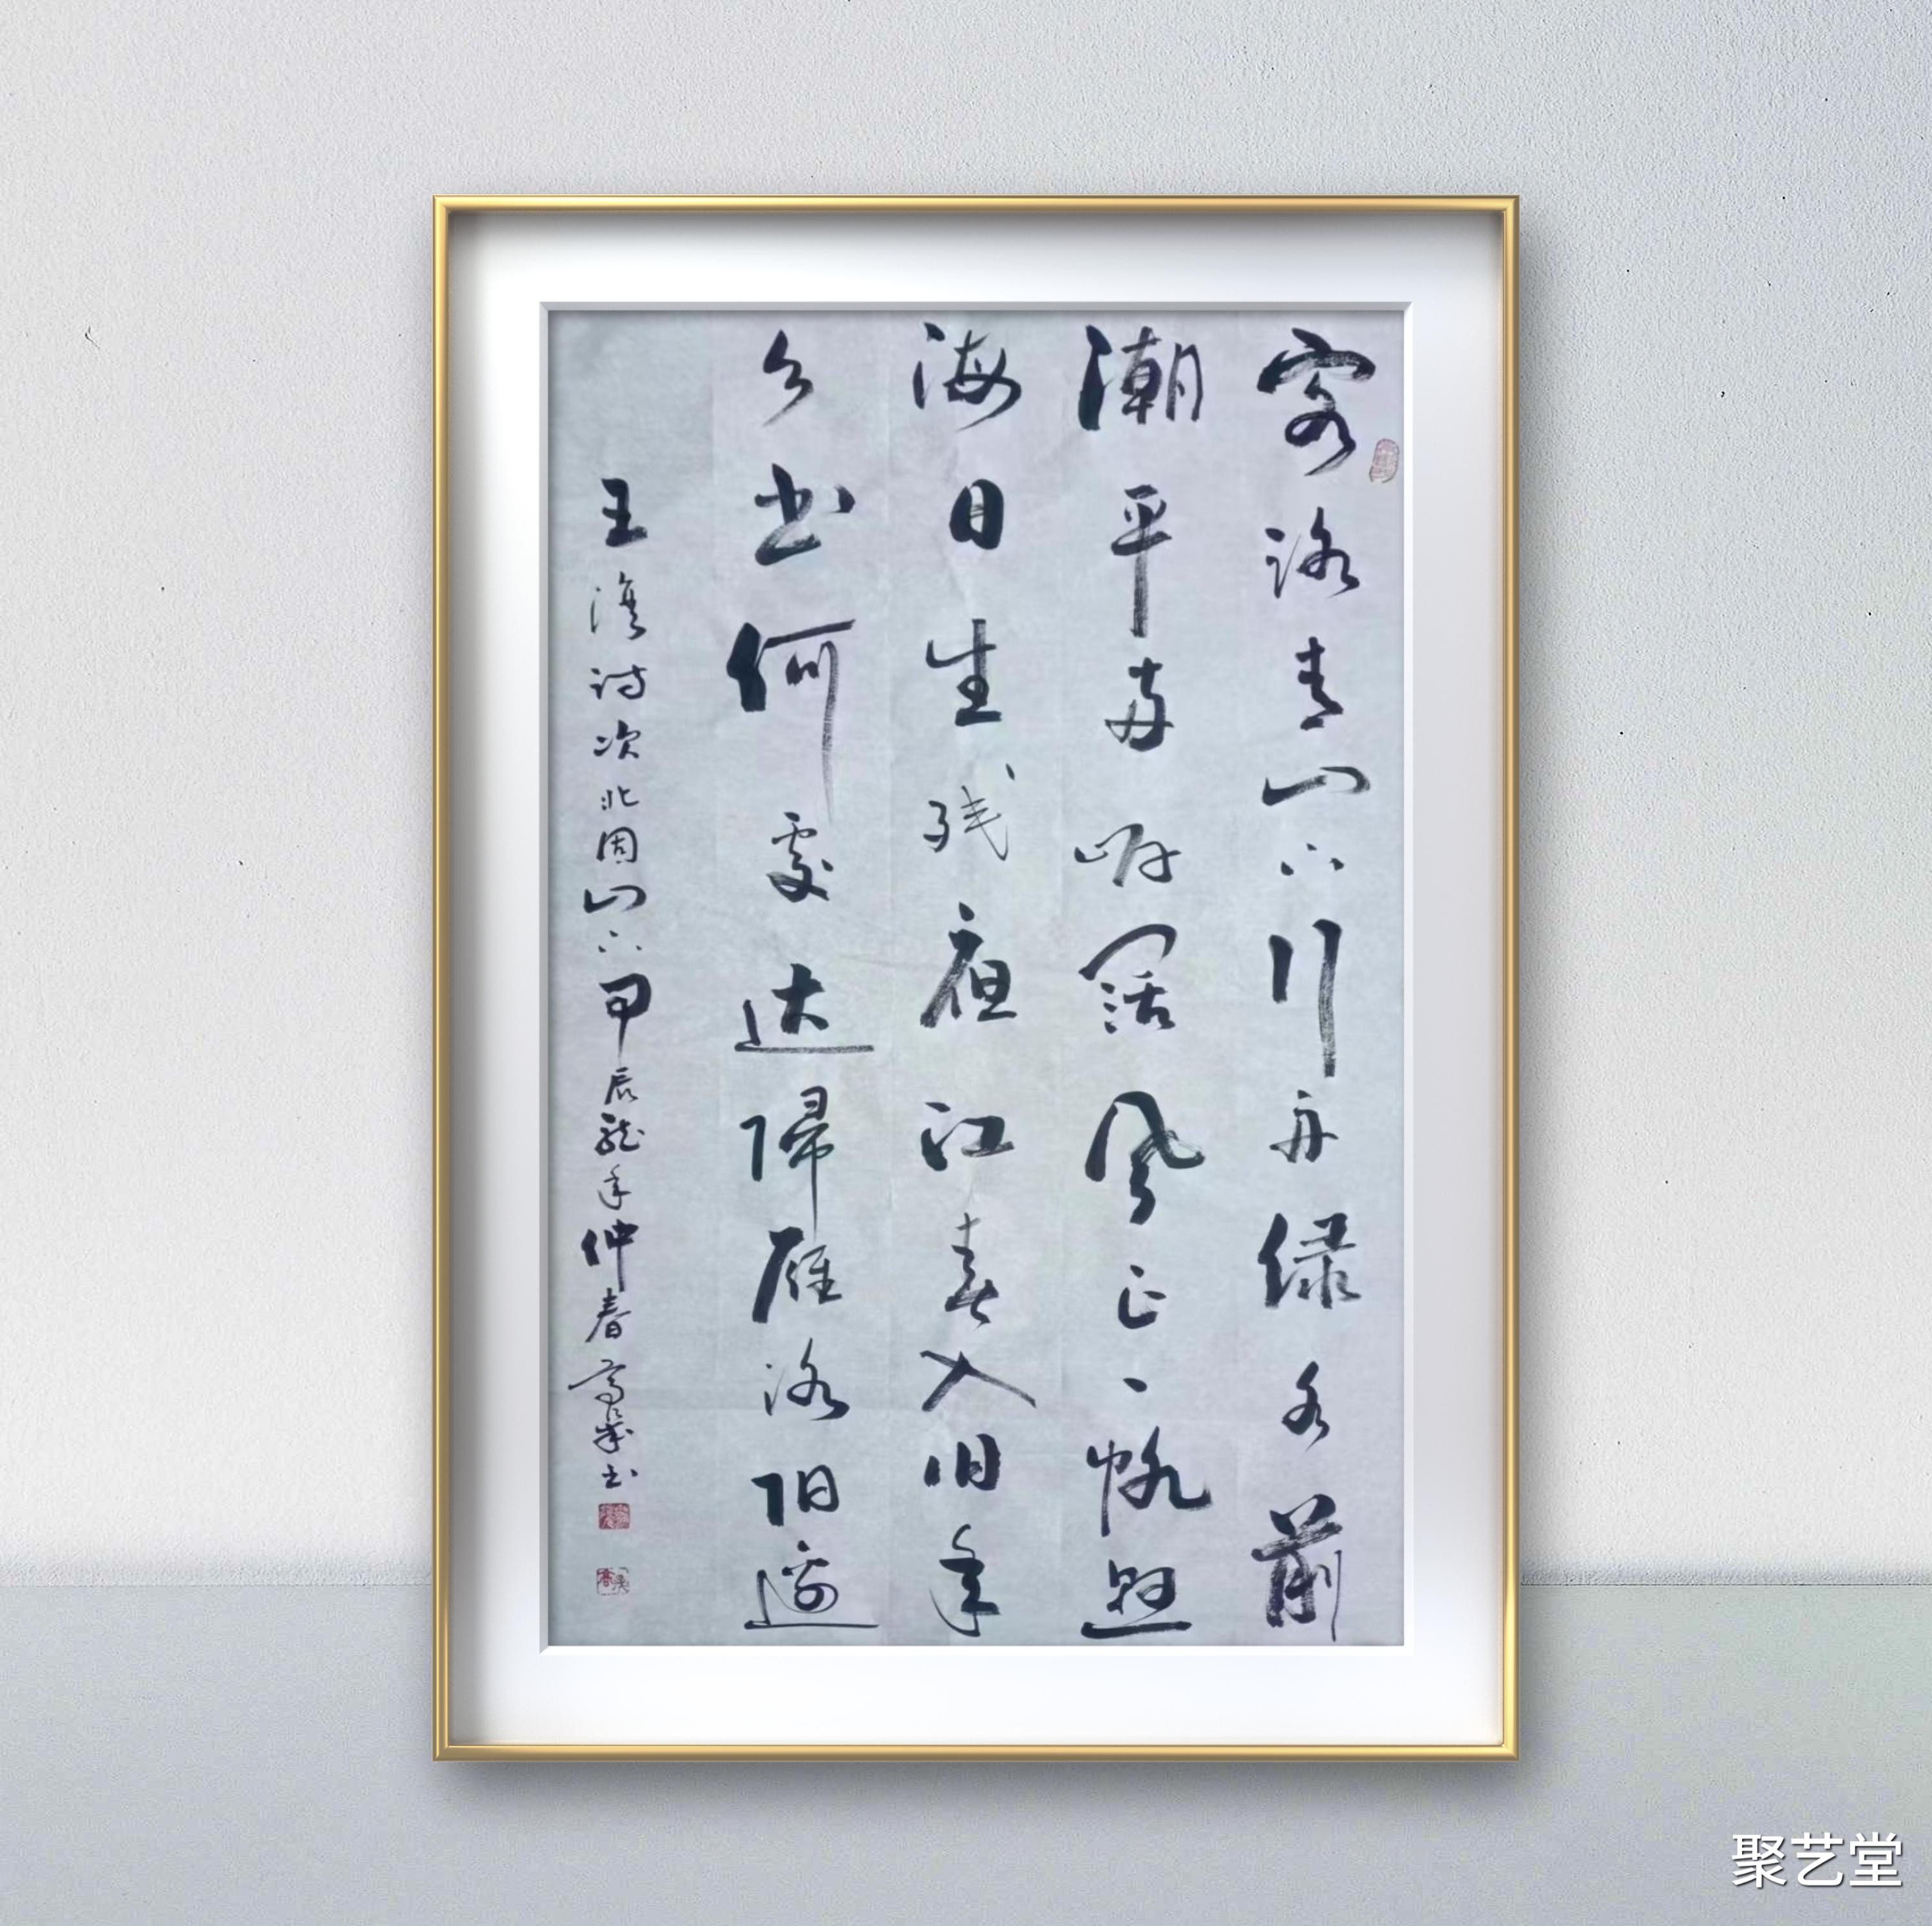 客路青山下行舟绿水前
潮平两岸阔风正一帆悬
海日生残夜江春入旧年
乡书何處达帰雁洛阳邊
王湾诗次北固山下甲辰龙年仲春高书
聚艺堂